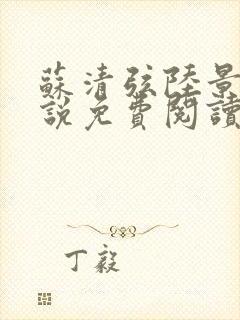 蘇清弦陸景
說免費閱讀
丁毅